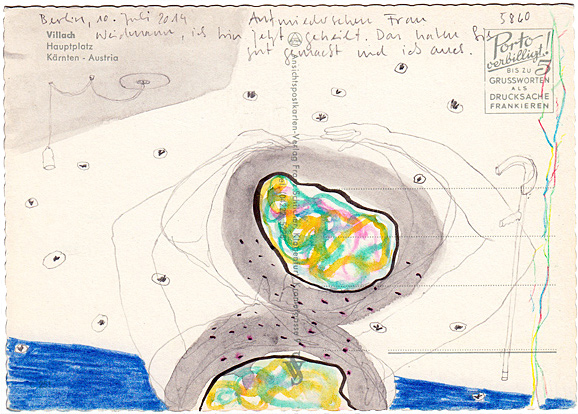 Berlin, 10. Juli 2014
Frau
5860
Weidmann, ich bin jetzt geheilt. Das haben Sie
gut gemacht und ich auch.
Villach
Hauptplatz
Kärnten - Austria
Porto
verbilligt!
5
BIS ZU
GRUSSWORTEN
ALS
DRUCKSACHE
FRANKIEREN
Ansichtspostkarten-Verlag Franz